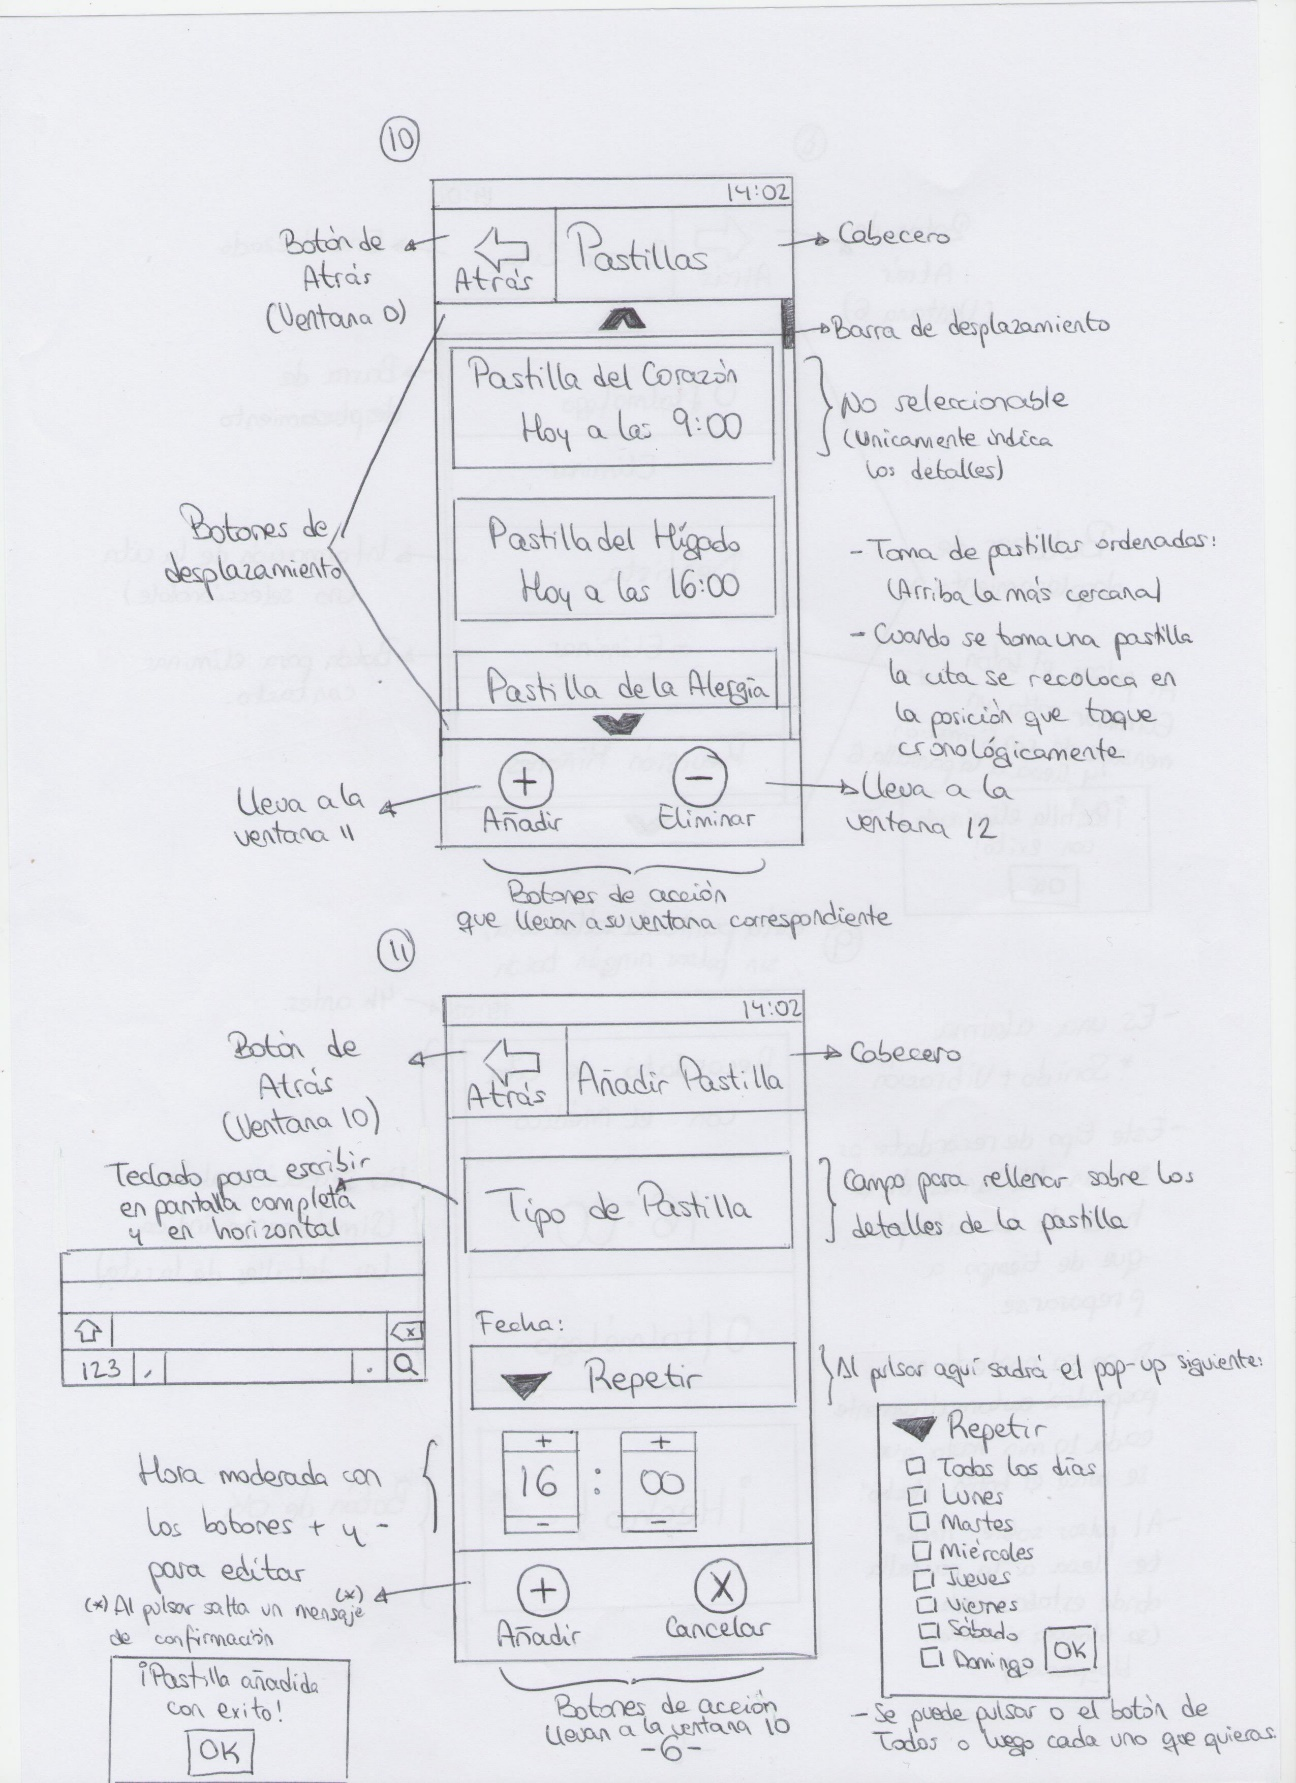 10
14:02
Botón de
Atrás
(Ventana 0)
Atrás
Pastillas
Cabecero
Barra de desplazamiento
Pastilla del Corazón
Hoy a las 9:00
No seleccionable
(Unicamente indica
los detalles)
Botones de
desplazamiento
Pastilla del Hígado
Hoy a las 16:00
- Toma de pastillas ordenadas:
(Arriba la más cercana)
- Cuando se toma una pastilla
la cita se recoloca en
la posición que toque
cronológicamente
Pastilla de la Alergia
Lleva a la
ventana 11
+
Añadir
-
Eliminar
Lleva a la
ventana 12
Botones de acción
que llevan a su ventana correspondiente
11
14:02
Botón de
Atrás
(Ventana 10)
Atrás
Añadir Pastilla
Cabecero
Teclado para escribir
en pantalla completa
y en horizontal
Tipo de Pastilla
Campo para rellenar sobre los
detalles de la pastilla
x
123 , .
Fecha:
Repetir
Al pulsar aquí sadrá el pop-up siguiente:
Repetir
Todos los días
Lunes
Martes
Miércoles
Jueves
Viernes
Sábado
Domingo
OK
Hora moderada con
los botones + y -
para editar
+ +
16 : 00
- -
(*)
(*) Al pulsar salta un mensaje
de confirmación
¡Pastilla añadida
con exito!
OK
+
Añadir
X
Cancelar
Botones de acción
llevan a la ventana 10
- Se puede pulsar o el botón de
Todos o luego cada uno que quieras.
-6-